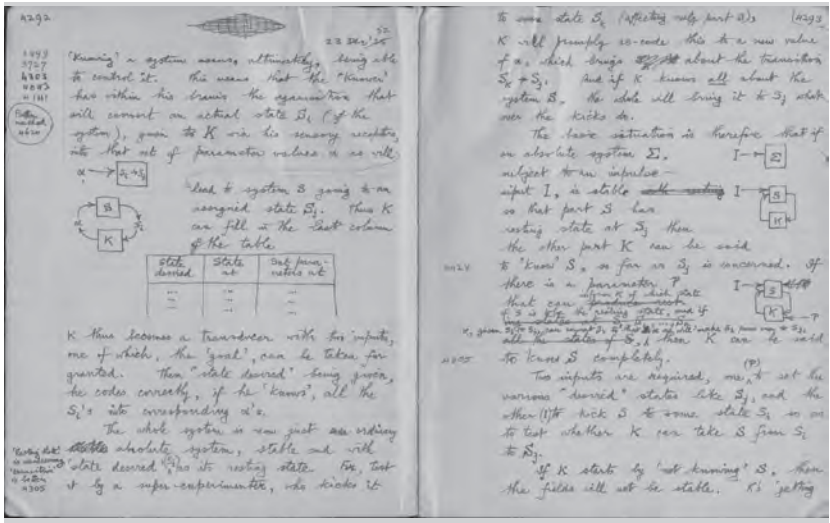 4292
52
23 Dec '52
'Knowing' a system means, ultimately, being able
to control it. This means that the 'Knower'
has within his brain the organisation that
will convert an actual state Si (of the
system), given to K via his sensory receptors,
into that set of parameter values α as will
α → Si → Sj
lead to system S going to an
assigned state Sj. Thus K
can fill in the last column
of the table
S
α
Si
K
State desired
State at
Set parameters at
...
...
...
...
...
...
...
...
...
K thus becomes a transducer with two inputs,
one of which, the 'goal', can be taken for
granted. Then "state desired" being given,
he codes correctly, if he 'knows', all the
Si's into corresponding α's.
The whole system is now just an ordinary
absolute system, stable and with
'state desired' as its resting state. For, test
it by a super-experimenter, who kicks it
is better
4305
4293
to some state Sk (affecting only part S);
K will promptly re-code this to a new value
of α, which brings about the transition
Sk → Sj. And if K knows all about the
system S, the whole will bring it to Sj what
ever the kicks do.
The basic situation is therefore that if
an absolute system Σ,
subject to an impulse-
input I, is stable
so that part S has
resting state at Sj then
the other part K can be said
I → Σ
I → S
K
to 'know' S, so far as Sj is concerned. If
there is a parameter P
that can
inform K of which state
of S is to be the resting state, and if
I → S
K
P
all the states of S, then K can be said
4305
to know S completely.
Two inputs are required, one (P) to set the
various "desired" states like Sj, and the
other (I) to kick S to some state Si so as
to test whether K can take S from Si
to Sj.
If K starts by 'not knowing' S, then
the fields will not be stable. K's 'getting